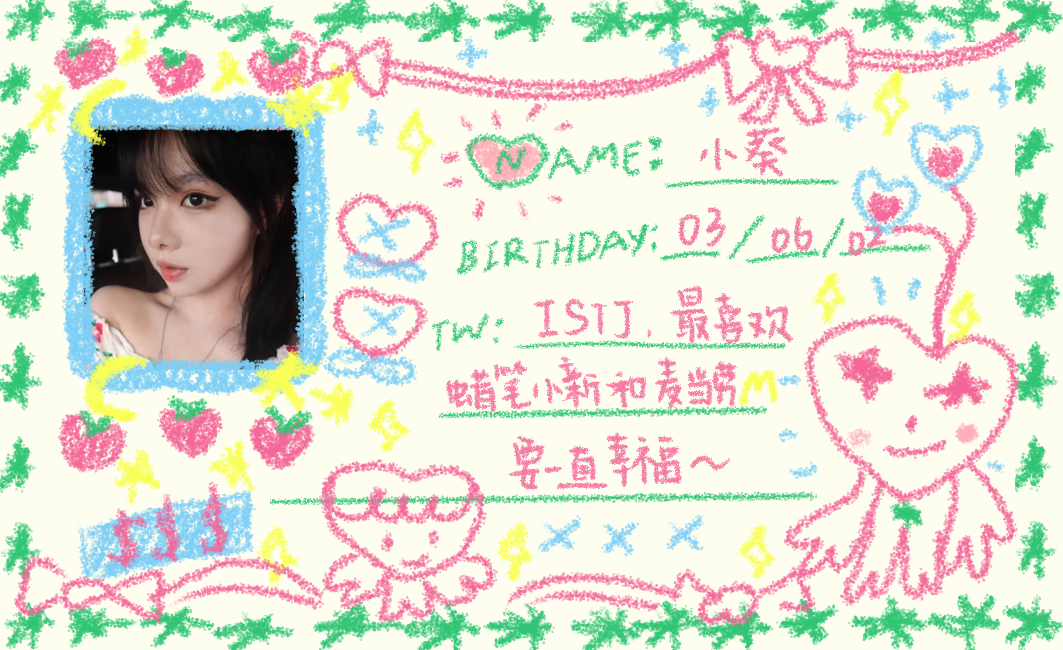 NAME: 小葵
BIRTHDAY: 03/06/02
TW: ISTJ, 最喜欢
蜡笔小新和麦当劳M
要一直幸福～